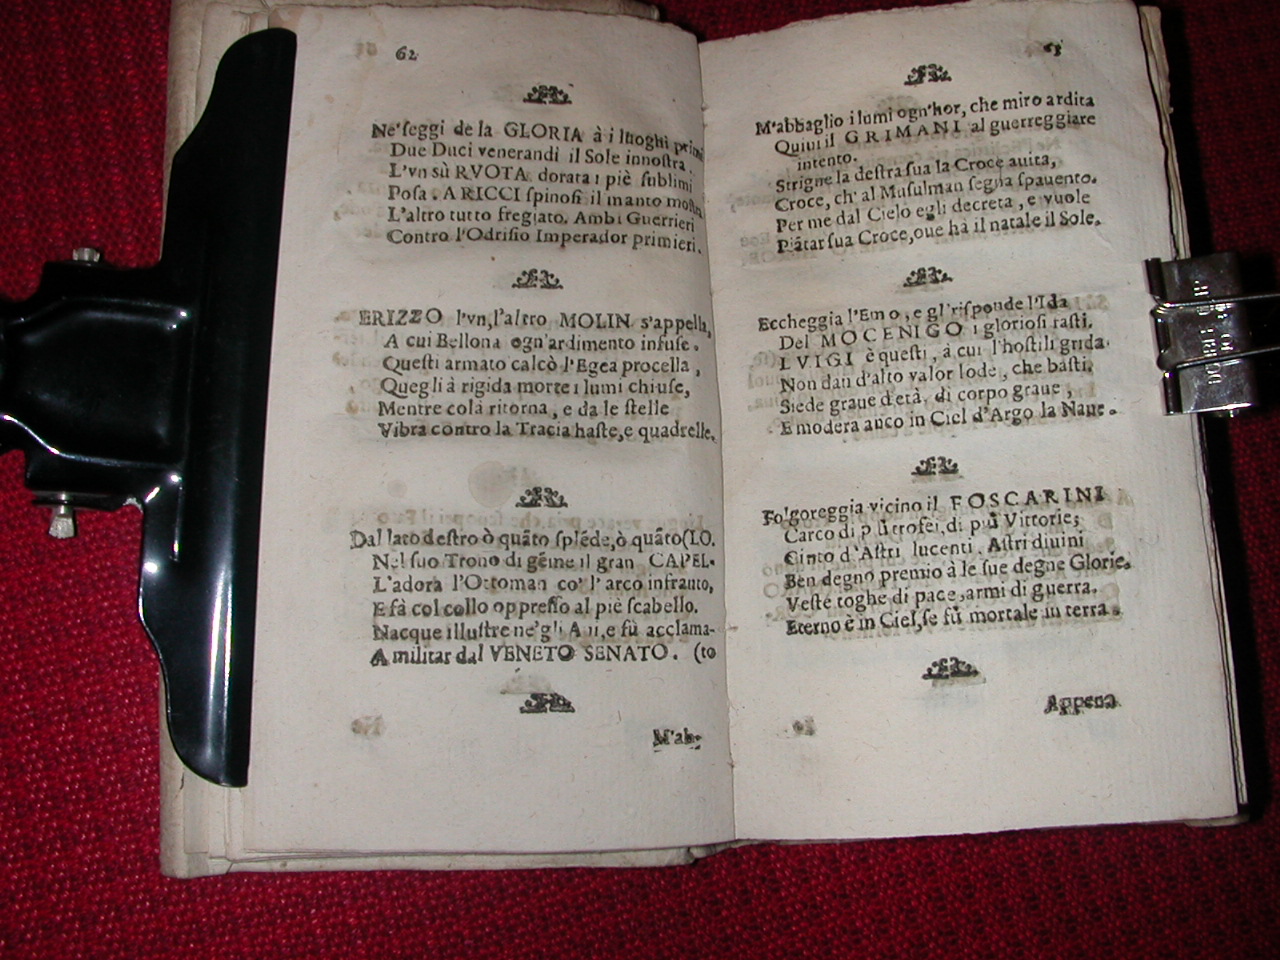 62
Ne' seggi de la GLORIA à i luoghi primi
Due Duci venerandi il Sole innostra.
L'vn sù RVOTA dorata i piè sublimi
Posa. A RICCI spinosi il manto mostra
L'altro tutto fregiato. Ambi Guerrieri
Contro l'Odrisio Imperador primieri.
ERIZZO l'vn, l'altro MOLIN s'appella,
A cui Bellona ogn'ardimento infuse.
Questi armato calcò l'Egea procella,
Quegli à rigida morte i lumi chiuse,
Mentre colà ritorna, e da le stelle
Vibra contro la Tracia haste, e quadrelle.
Dal lato destro ò quāto splēde, ò quāto (LO.
Nel suo Trono di gēme il gran CAPEL-
L'adora l'Ottoman co' l'arco infranto,
E fà col collo oppresso al piè scabello.
Nacque illustre ne' gli A ui, e fù acclama-
A militar dal VENETO SENATO. (to
M'ab-
63
M'abbaglio i lumi ogn'hor, che miro ardita
Quiui il GRIMANI al guerreggiare
intento.
Strigne la destra sua la Croce auita,
Croce, ch'al Musulman segna spauento.
Per me dal Cielo egli decreta, e vuole
Piātar sua Croce, oue hà il natale il Sole.
Eccheggia l'Emo, e gl'risponde l'Ida
Del MOCENIGO i gloriosi fasti.
LVIGI è questi, à cui l'hostili grida
Non dan d'alto valor lode, che basti.
Siede graue d'età, di corpo graue,
E modera anco in Ciel d'Argo la Naue.
Folgoreggia vicino il FOSCARINI
Carco di più trofei, di più Vittorie;
Cinto d'Astri lucenti, Astri diuini
Ben degno premio à le sue degne Glorie.
Veste toghe di pace, armi di guerra.
Eterno è in Ciel, se fù mortale in terra.
Appena